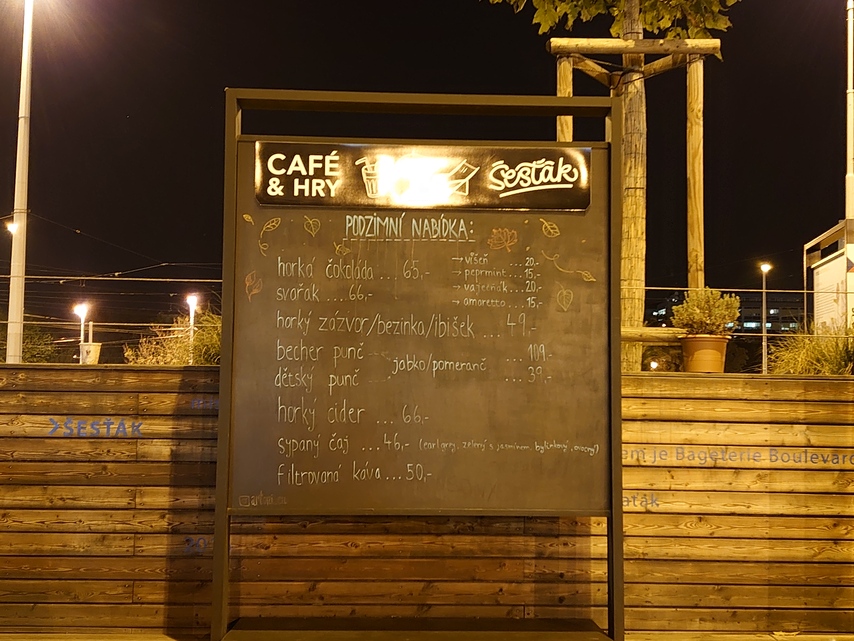 CAFÉ
& HRY
Šesťák
PODZIMNÍ NABÍDKA:
horká čokoláda ... 65,-
→ višeň ... 20,-
→ peprmint ... 15,-
→ vaječňák ... 20,-
→ amaretto ... 15,-
svařák ... 66,-
horký zázvor/bezinka/ibišek ... 49,-
becher punč ... 109,-
jablko/pomeranč
dětský punč ... 39,-
horký cider ... 66,-
sypaný čaj ... 46,- (earl grey, zelený s jasmínem, bylinkový, ovocný)
filtrovaná káva ... 50,-
ŠESŤÁK
em je Bageterie Boulevard